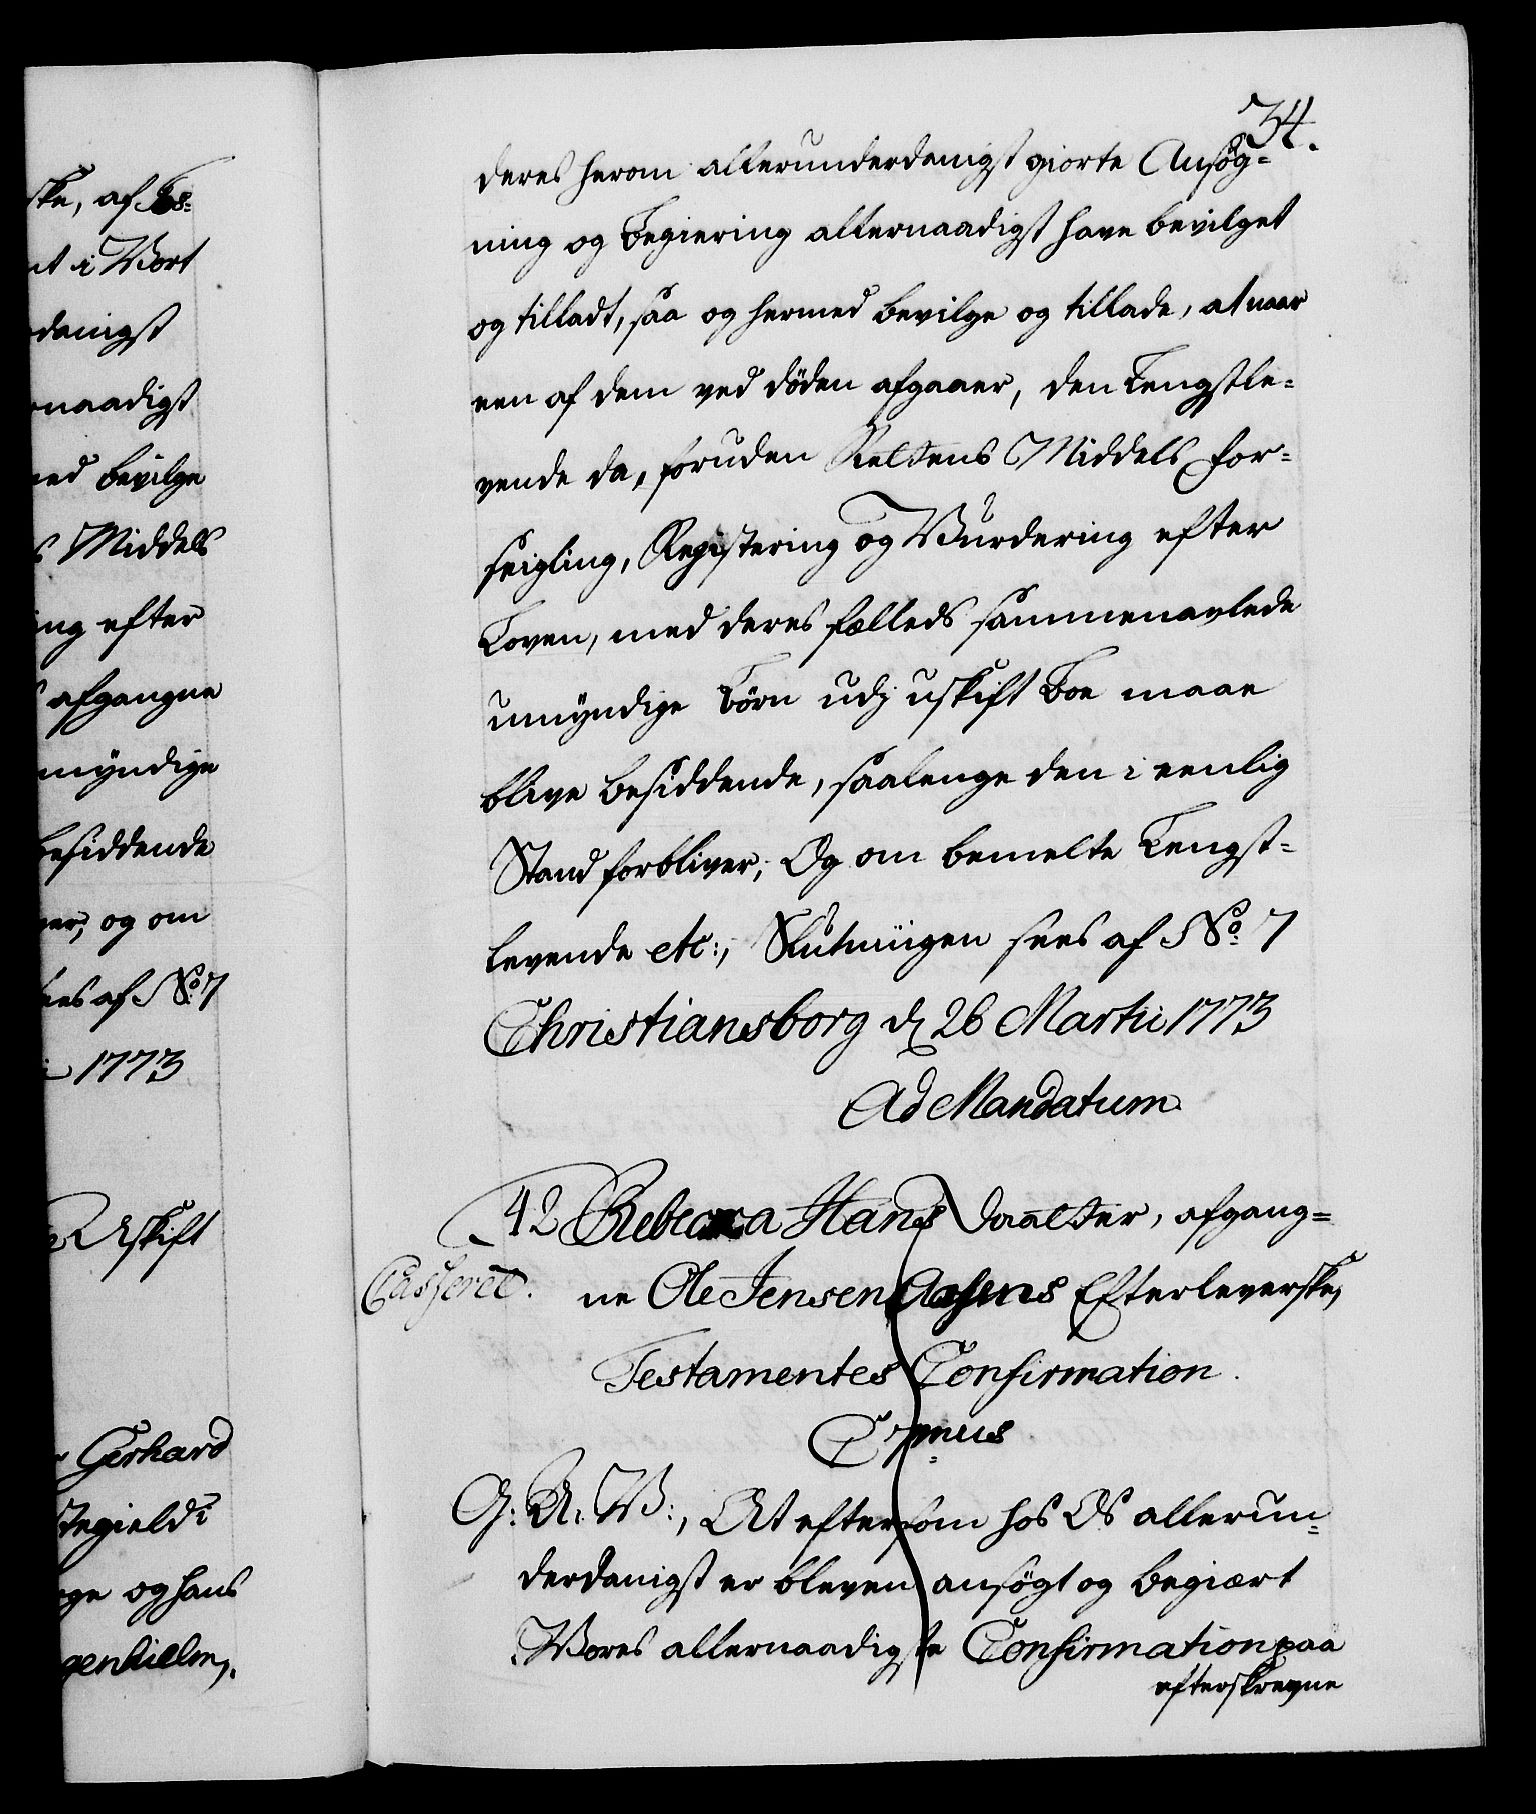 ske, af Es-
nt i Vort
danigst
naadigst
med bevilge
s Middels
ing efter
afgangne
myndige
besiddende
ver, og om
sees af No: 7
1773
Uskift
Gerhard
tegield i
ge og hans
genhielm,
34.
deres herom allerunderdanigst giorte Ansøg-
ning og Begiering allernaadigst have bevilget
og tilladt, saa og hermed bevilge og tillade, at naar
een af dem ved døden afgaaer, den Lengstle-
vende da, foruden Rettens Middels For-
seigling, Registering og Vurdering efter
Loven, med deres fælleds sammenavlede
umyndige Børn udj uskift Boe maae
blive besiddende, saalenge den i eenlig
Stand forbliver; Og om bemelte Lengst-
levende etc:, Slutningen sees af No: 7
Christiansborg d 26 Martii 1773
Ad Mandatum
42 Rebecca Hans Daatter, afgang-
Casseret. ne Ole Jensen Efterleverske,
Testamentes Confirmation.
C 7mus
G: A: V:, At eftersom hos Os allerun-
derdanigst er bleven ansøgt og begiært
Vores allernaadigste Confirmation paa
efterskrevne